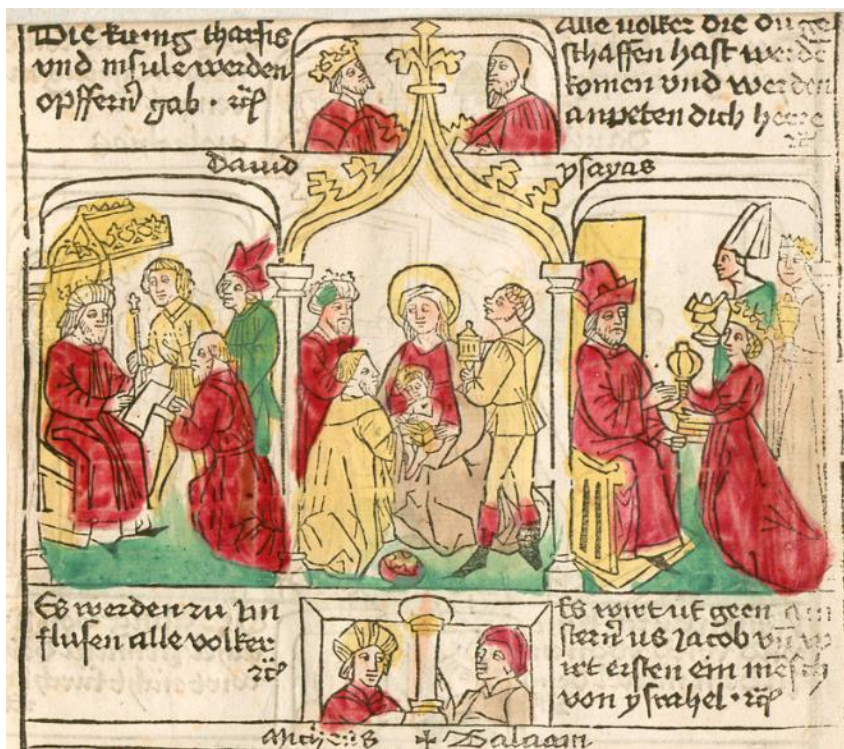 Die kunig tharsis
und insule werden
opffern gab · rc̄
Alle volker die du ge
schaffen hast werdē
komen und werden
anpeten dich herre
rc̄
david
ysayas
Es werden zu im
flusen alle volker
rc̄
Es wirt uf geen ain
stern us Jacob vn̄
irt ersten ein mēsch
von ysrahel · rc̄
Micheus + Balaam